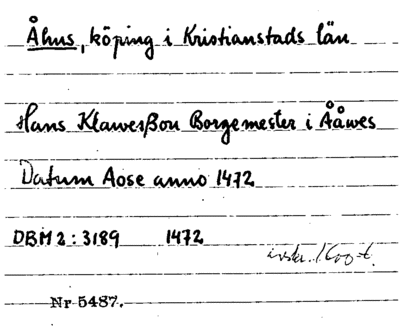 Åhus, köping i Kristianstads län
Hans Klawesßon Borgemester i Ååwes
Datum Aose anno 1472
DBM 2:3189 1472
Nr 5487.